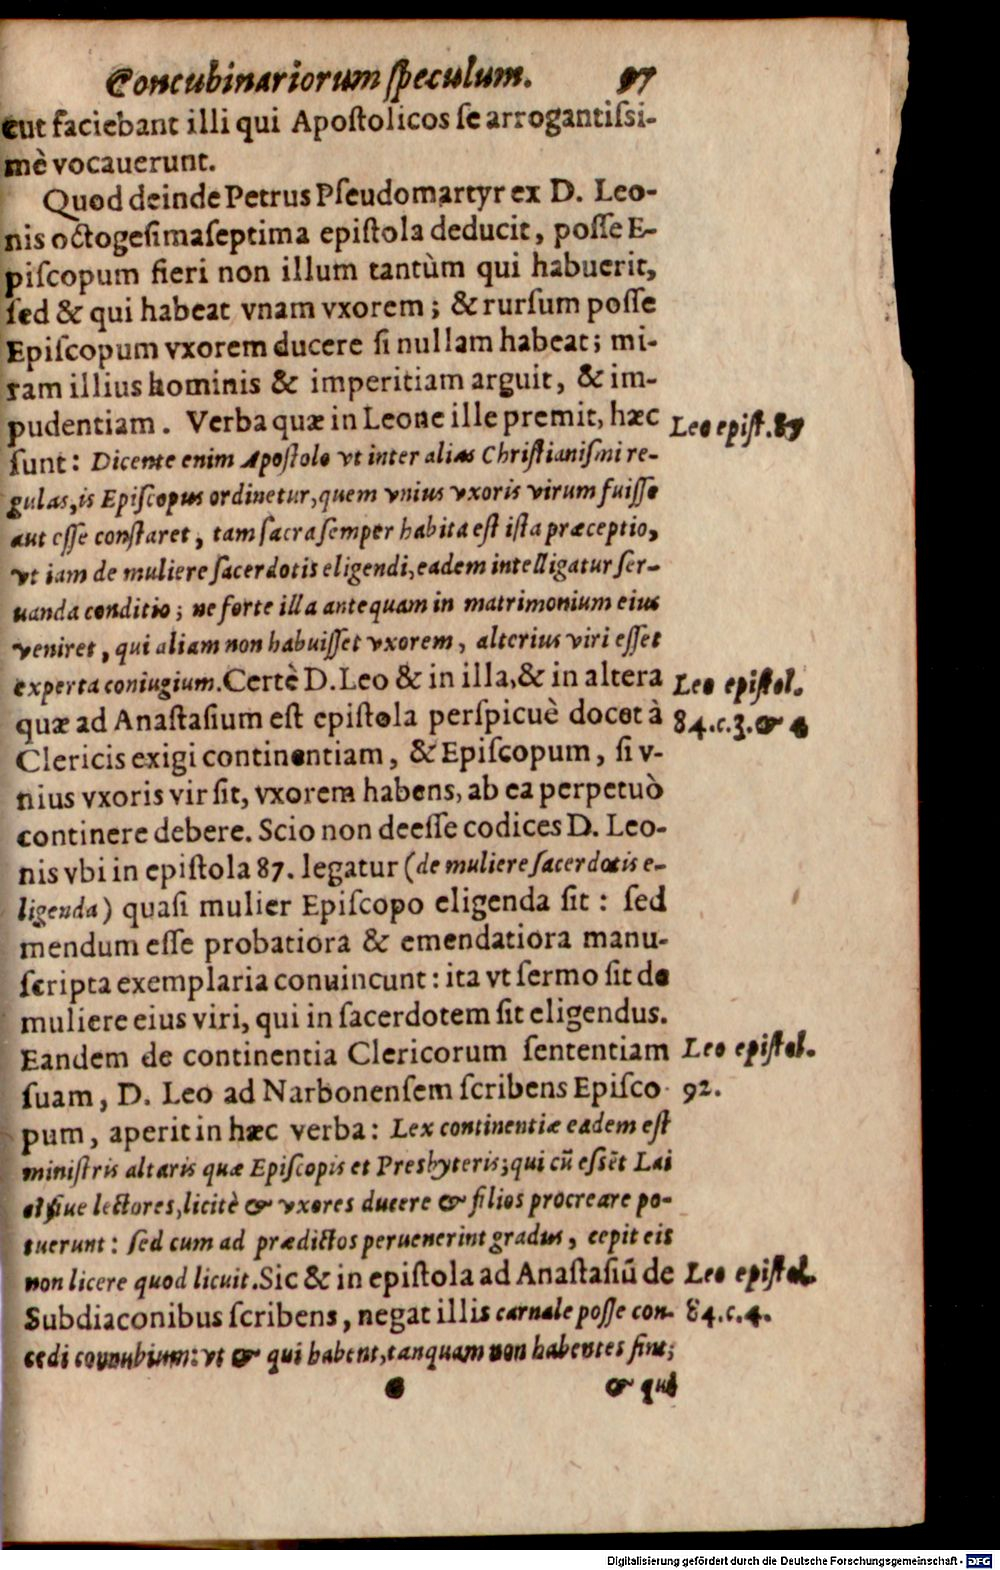 Concubinariorum ſpeculum. 97
cut faciebant illi qui Apoſtolicos ſe arrogantiſsi-
mè vocauerunt.
Quod deinde Petrus Pſeudomartyr ex D. Leo-
nis octogeſimaſeptima epiſtola deducit, poſſe E-
piſcopum fieri non illum tantùm qui habuerit,
ſed & qui habeat vnam vxorem; & rurſum poſſe
Epiſcopum vxorem ducere ſi nullam habeat; mi-
ram illius hominis & imperitiam arguit, & im-
pudentiam. Verba quæ in Leone ille premit, hæc
Leo epiſt. 87
ſunt: Dicente enim Apoſtolo vt inter alias Chriſtianiſmi re-
gulas, is Epiſcopus ordinetur, quem vnius vxoris virum fuiſſe
aut eſſe conſtaret, tam ſacra ſemper habita eſt iſta præceptio,
vt iam de muliere ſacerdotis eligendi, eadem intelligatur ſer-
uanda conditio; ne forte illa antequam in matrimonium eius
veniret, qui aliam non habuiſſet vxorem, alterius viri eſſet
experta coniugium. Certè D. Leo & in illa, & in altera
Leo epiſtol.
quæ ad Anaſtaſium eſt epiſtola perſpicuè docet à
84. c. 3. & 4
Clericis exigi continentiam, & Epiſcopum, ſi v-
nius vxoris vir ſit, vxorem habens, ab ea perpetuò
continere debere. Scio non deeſſe codices D. Leo-
nis vbi in epiſtola 87. legatur (de muliere ſacerdotis e-
ligenda) quaſi mulier Epiſcopo eligenda ſit: ſed
mendum eſſe probatiora & emendatiora manu-
ſcripta exemplaria conuincunt: ita vt ſermo ſit de
muliere eius viri, qui in ſacerdotem ſit eligendus.
Eandem de continentia Clericorum ſententiam
Leo epiſtol.
ſuam, D. Leo ad Narbonenſem ſcribens Epiſco-
92.
pum, aperit in hæc verba: Lex continentiæ eadem eſt
miniſtris altaris quæ Epiſcopis et Presbyteris; qui cū eſsēt Lai
ci ſiue lectores, licitè & vxores ducere & filios procreare po-
tuerunt: ſed cum ad prædictos peruenerint gradus, cepit eis
non licere quod licuit. Sic & in epiſtola ad Anaſtaſiū de
Leo epiſtol.
Subdiaconibus ſcribens, negat illis carnale poſſe con-
84. c. 4.
cedi connubium: vt & qui habent, tanquam non habentes ſint;
& qui
Digitalisierung gefördert durch die Deutsche Forschungsgemeinschaft - DFG